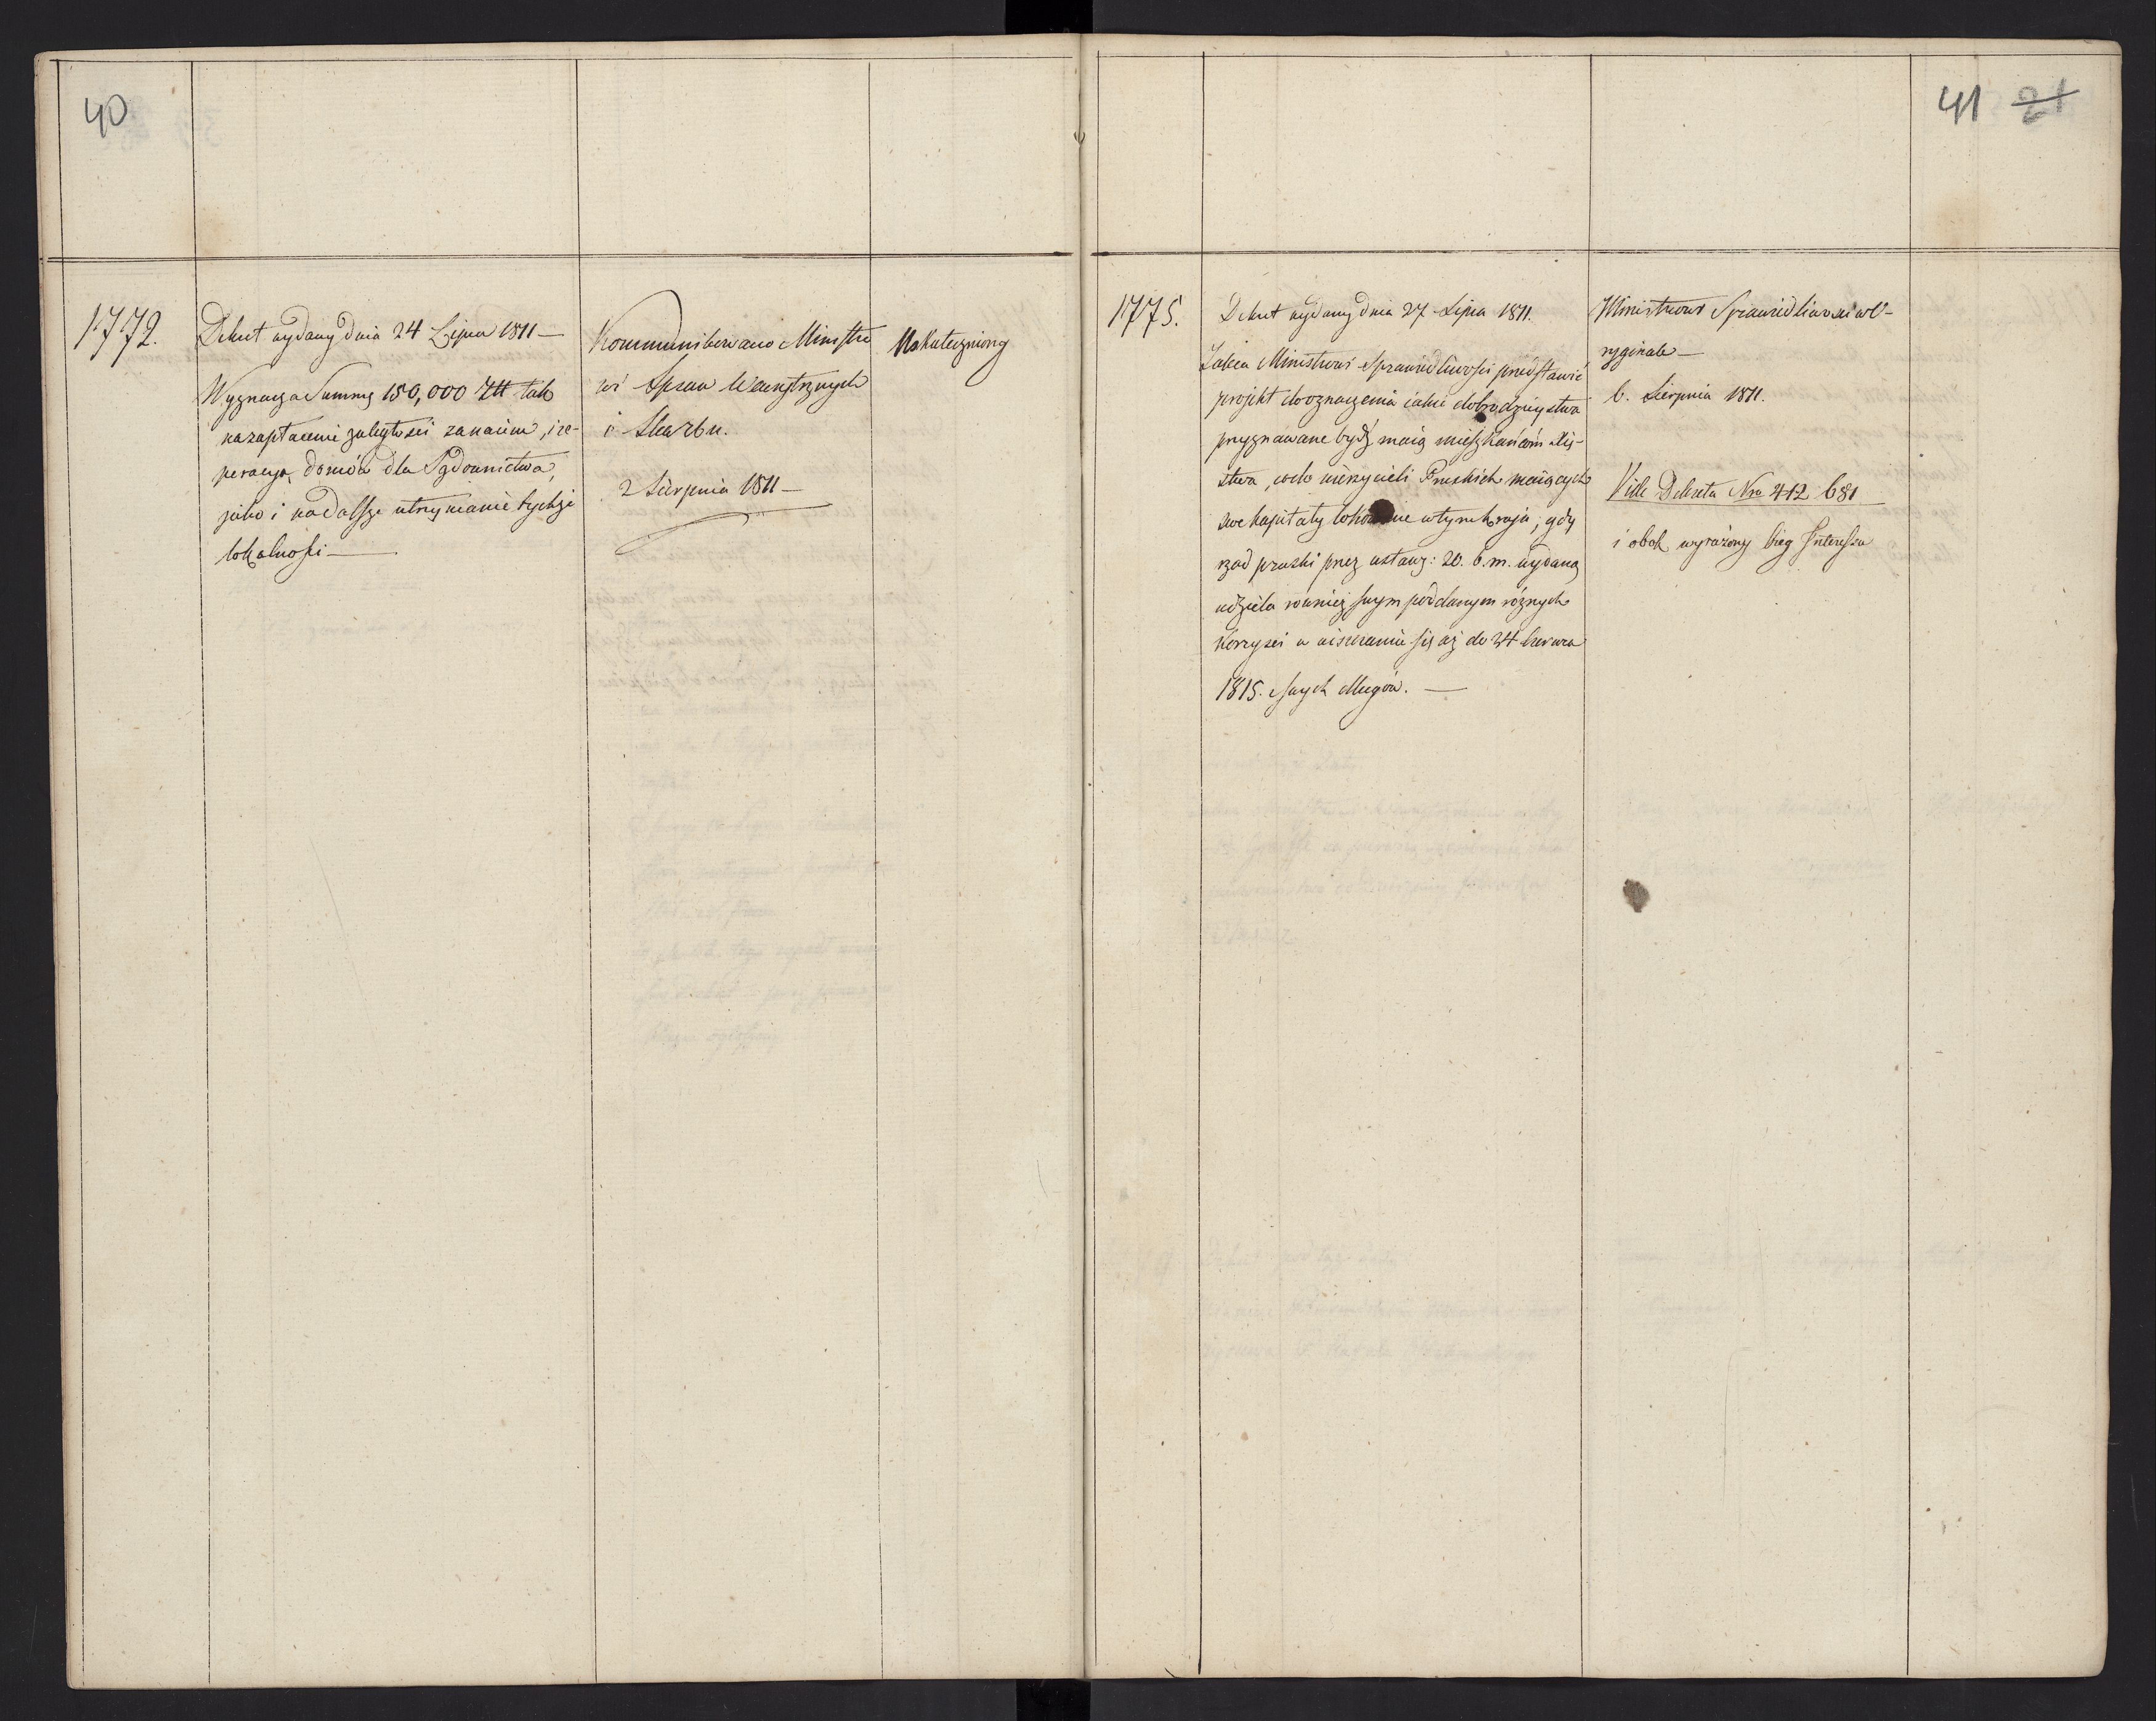 40
1772.
Dekret wydany dnia 24 Lipca 1811 —
Wyznacza Summę 150,000 Złł tak
na zapłacenie zaległości za naiem, i re-
peracyą domów dla Sądownictwa,
jako i na dalsze utrzymanie tychże
lokalności —
Kommunikowano Ministro
wi Spraw Wewnętrznych
i Skarbu.
2 Sierpnia 1811 —
Uskuteczniony
41 21
1775.
Dekret wydany dnia 27 Lipca 1811.
Zaleca Ministrowi Sprawiedliwości przedstawić
projekt do oznaczenia iakie dobrodzieystwa
przyznawane bydź maią mieszkańcom Xię-
stwa, wierzycieli Pruskich maiących
swe kapitały lokowane w tym kraju, gdy
rząd pruski przez ustawę: 20. b. m. wydaną
udziela również swym poddanym różnych
korzyści w uiszczaniu się aż do 24 Czerwca
1815. swych długów. —
Ministrowi Sprawiedliwości w O-
ryginale —
6. Sierpnia 1811.
Vide Dekreta Nro 412 681
i obok wyrażony bieg Interessu